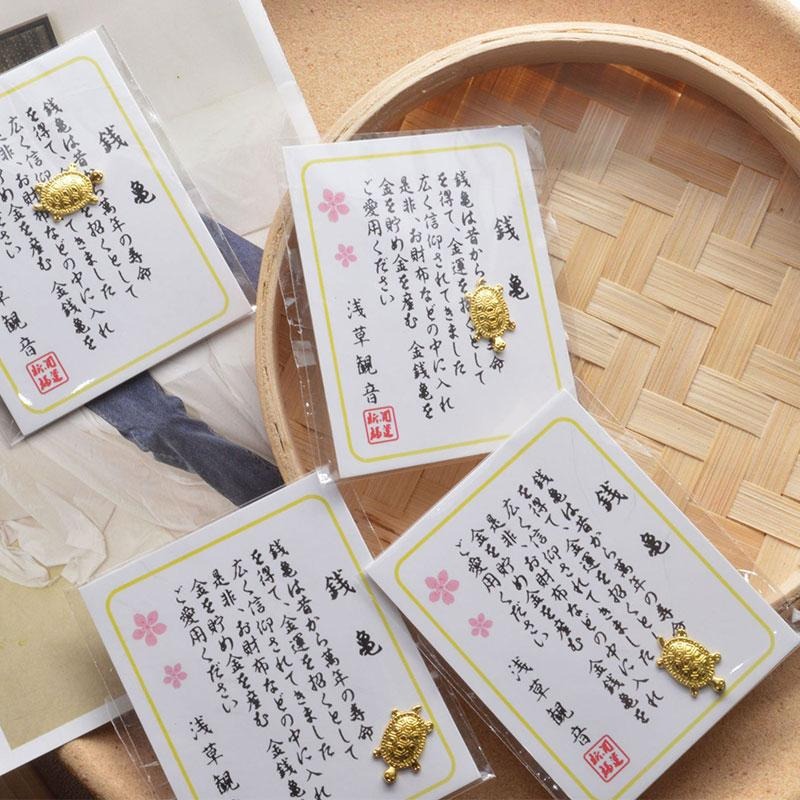 銭亀
銭亀は昔 萬年の寿命
を得て、 を招くとして
広く信仰 てきました
是非、お財布などの中に入れ
貯め金を産む 金銭亀を
ださい
草観音
銭亀
銭亀は昔から 命
を得て、金運を招くとして
広く信仰されてきました
是非、お財布などの中に入れ
金を貯め金を産む 金銭亀を
ご愛用ください
浅草観音
銭亀
銭亀は昔から萬年の寿命
を得て、金運を招くとして
広く信仰されてきました
是非、お財布などの中に入れ
金を貯め金を産む 金銭亀を
ご愛用ください
浅草観
銭亀
銭亀は昔から萬年の寿命
を得て、金運を招くとして
広く信仰されてきました
是非、お財布などの中に入れ
金を貯め金を産む 金銭亀を
ご愛用ください
浅草観音